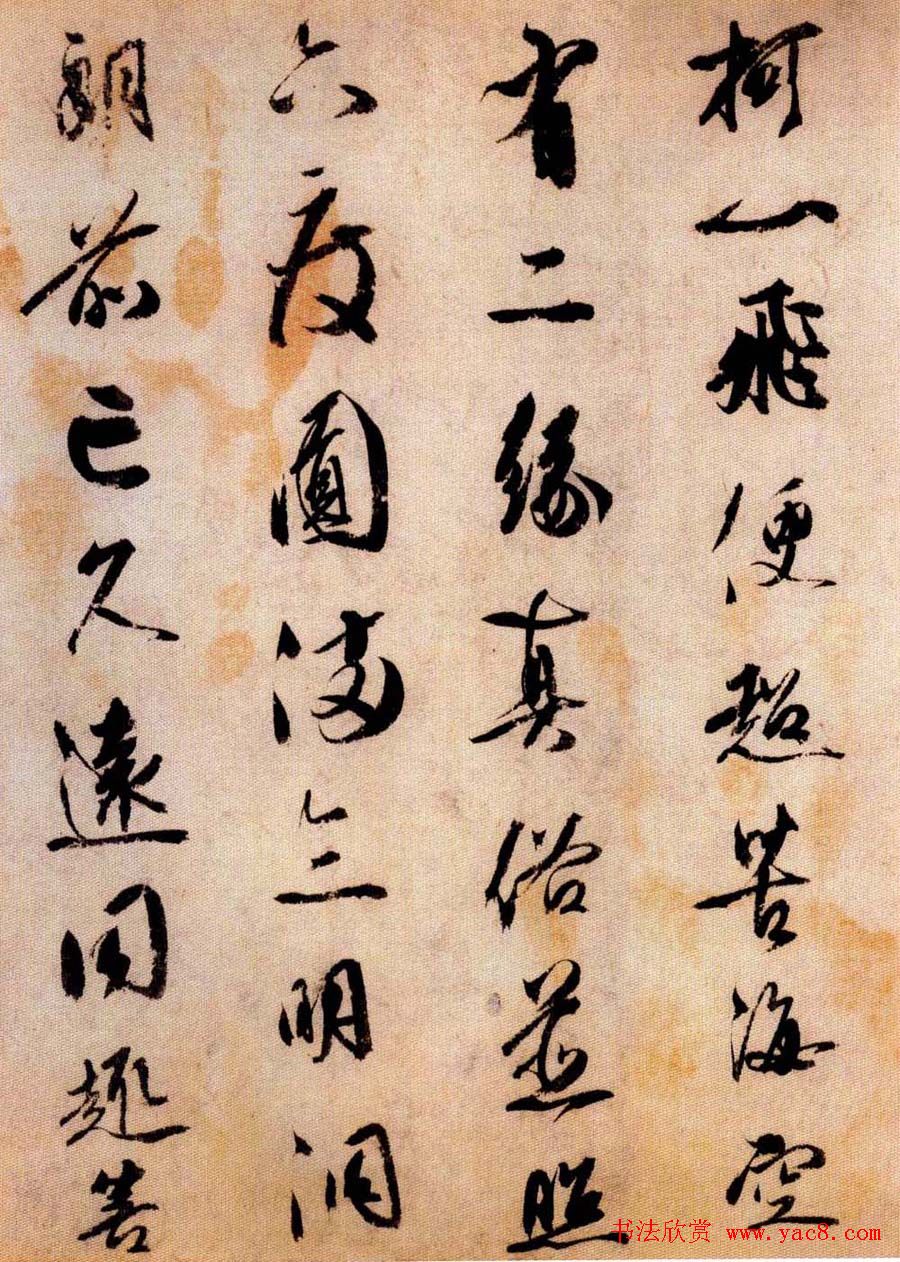 柯一飛便超苦海空
有二緣真俗並照
六度圓滿三明洞
朗前亡久遠同趣菩
书法欣赏 www.yac8.com